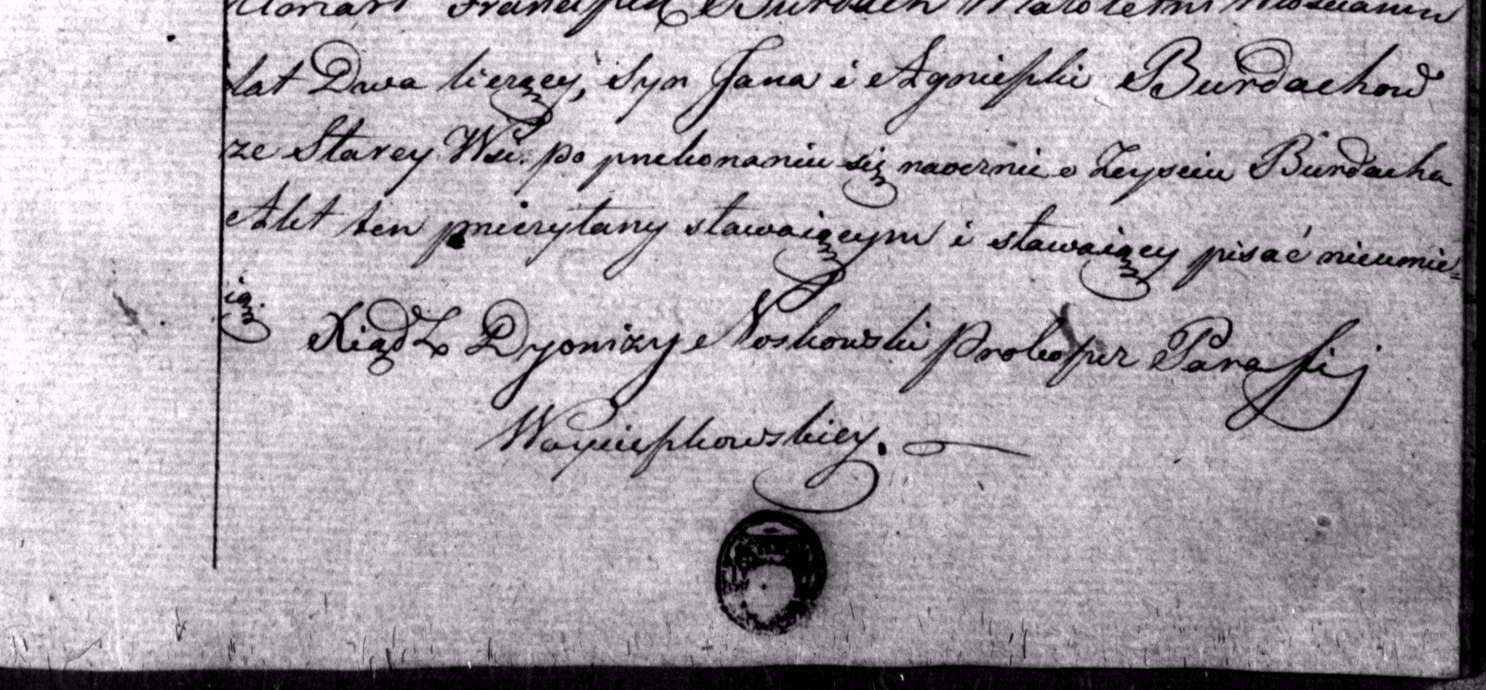 Umarł Franciszek Burdach Małoletni Włościanin
lat Dwa liczący, Syn Jana i Agnieszki Burdachow
ze Starey Wsi. po przekonaniu się naocznie o Zeyściu Burdacha
Akt ten przeczytany stawaiącym i stawaiący pisać nieumie=
ią.
Xiądz Dyonizy Noskowski Proboszcz Parafij
Woycieszkowskiey.